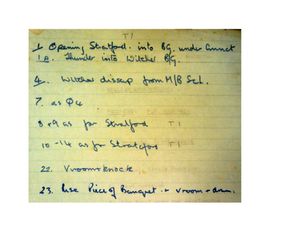 T1
1 Opening Stratford into B/G. under Cunnet
1A. Thunder into Witches B/G.
4. Witches dissap from M/B Sch.
7. as Q4
8+9 as for Stratford T1
10-14 as for Stratford T1
22. Vroom+knock
23. Use Piece of Banquet + vroom + dram.